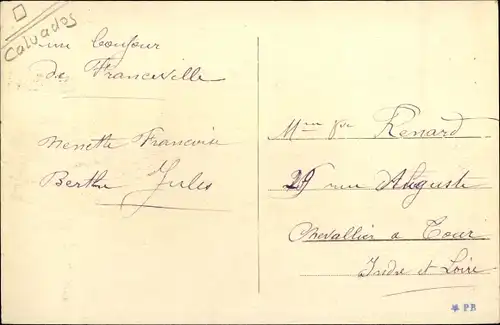 Calvados
un bonjour
de Franceville
Nenette Francoise
Berthe Jules
Mme Vve Renard
29 rue Auguste
Chevallier a Tour
Indre et Loire
PB